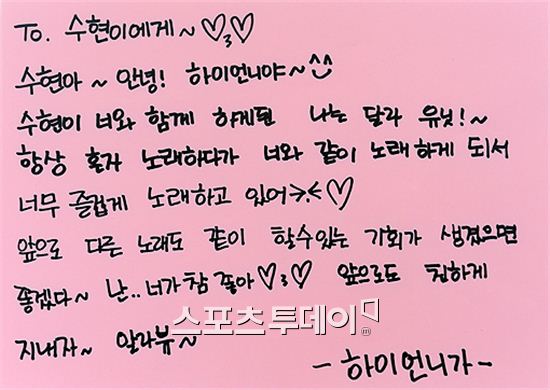 To. 수현이에게~♡3♡
수현아~ 안녕! 하이언니야~^^
수현이 너와 함께 하게된 나는 달라 유닛!~
항상 혼자 노래하다가 너와 같이 노래하게 되서
너무 즐겁게 노래하고 있어>.<♡
앞으로 다른 노래도 같이 할수있는 기회가 생겼으면
좋겠다~ 난..너가참 좋아♡3♡ 앞으로도 친하게
지내자~ 알라뷰~
스포츠투데이
-하이언니가-